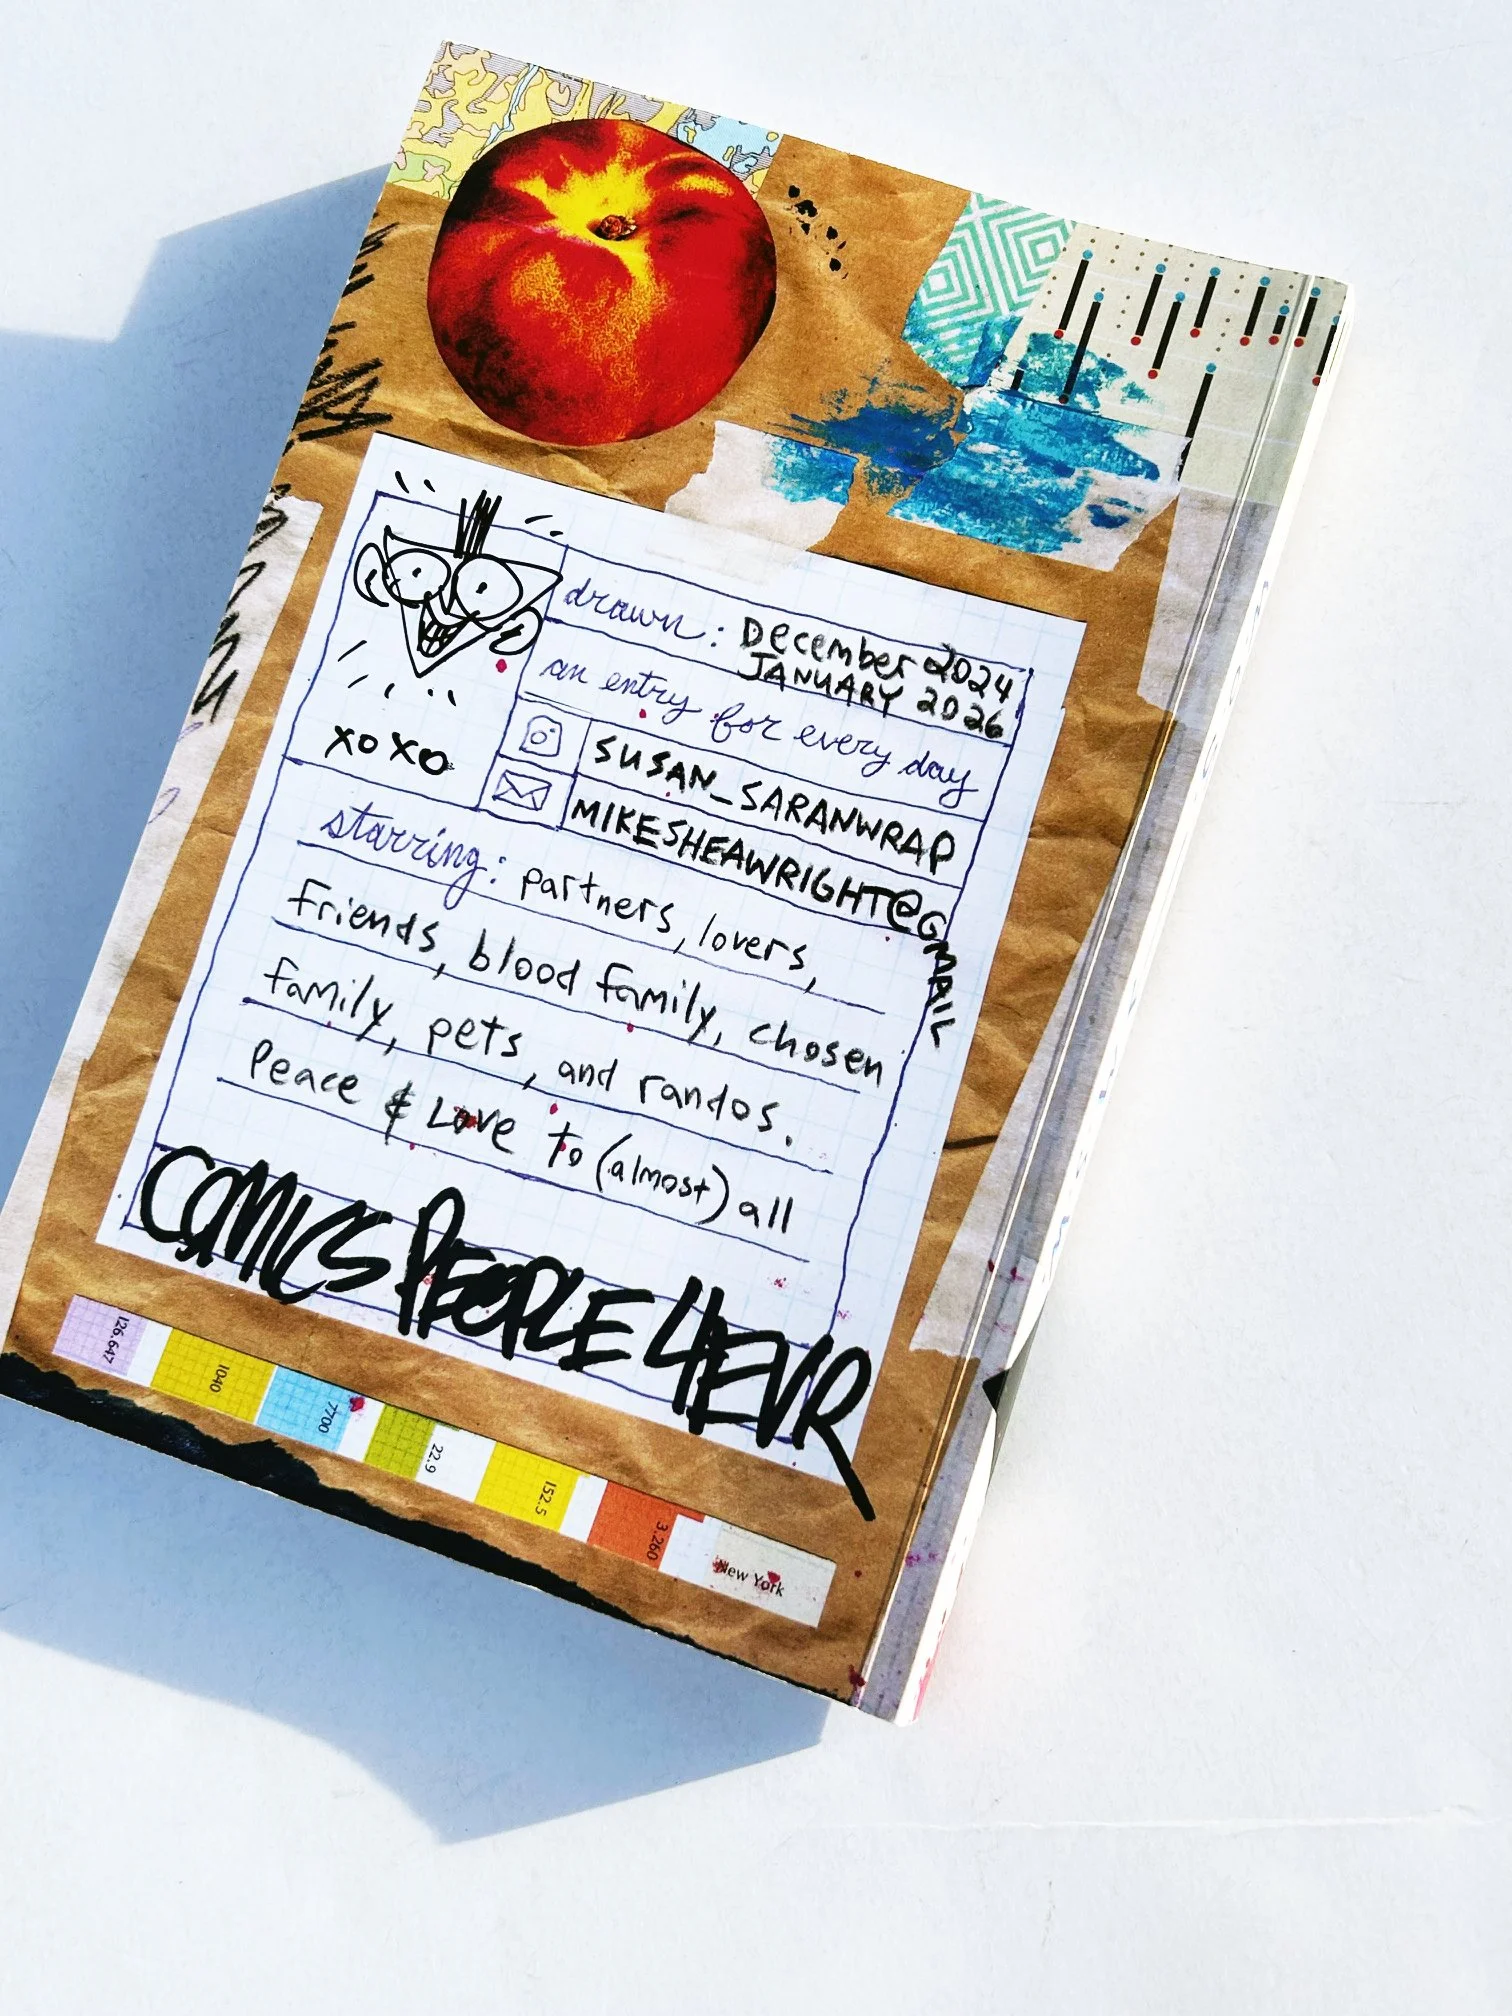 drawn: December 2024
JANUARY 2026
an entry for every day
SUSAN_SARANWRAP
MIKESHEAWRIGHT@GMAIL
xoxo
starring: partners, lovers,
friends, blood family, chosen
family, pets, and randos.
Peace & Love to (almost) all
COMICS PEOPLE 4EVR
126.647
1040
7700
22.9
152.5
3.260
New York